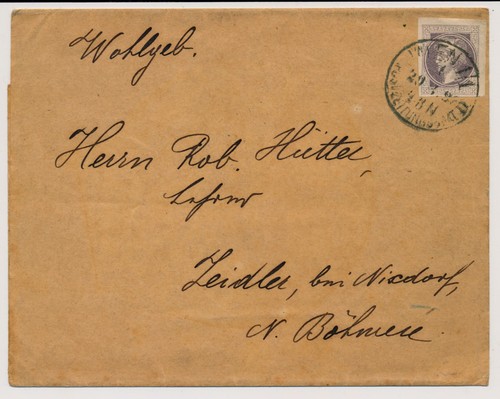 Wohlgeb.
WIEN
Herrn Rob. Hütter,
Lehrer
Zeidler, bei Nixdorf,
N. Böhmen.